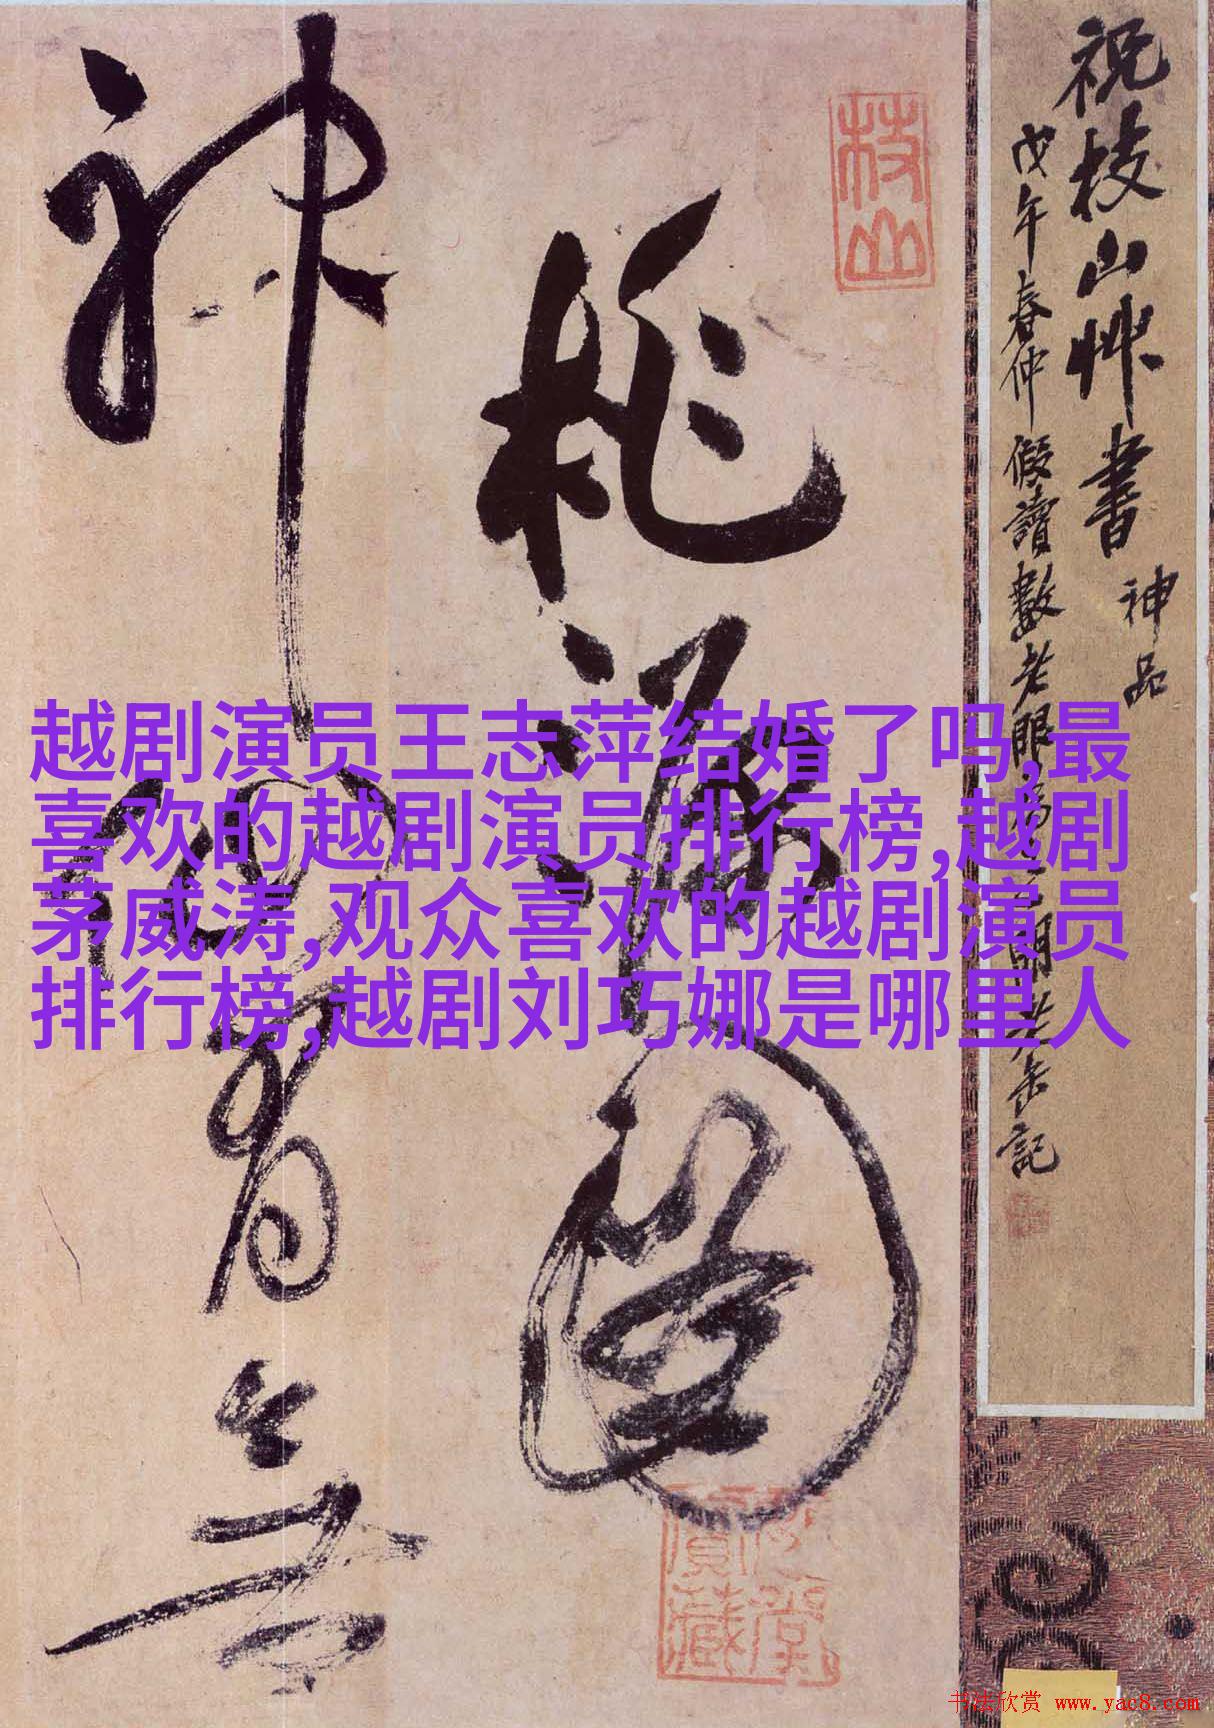 越剧演员王志萍结婚了吗,最
喜欢的越剧演员排行榜,越剧
茅威涛,观众喜欢的越剧演员
排行榜,越剧刘巧娜是哪里人
祝枝山艸書 神品
戊午春仲假讀數老眼為之明老缶記
枝山
桃源圖
神仙有無
书法欣赏 www.yac8.com